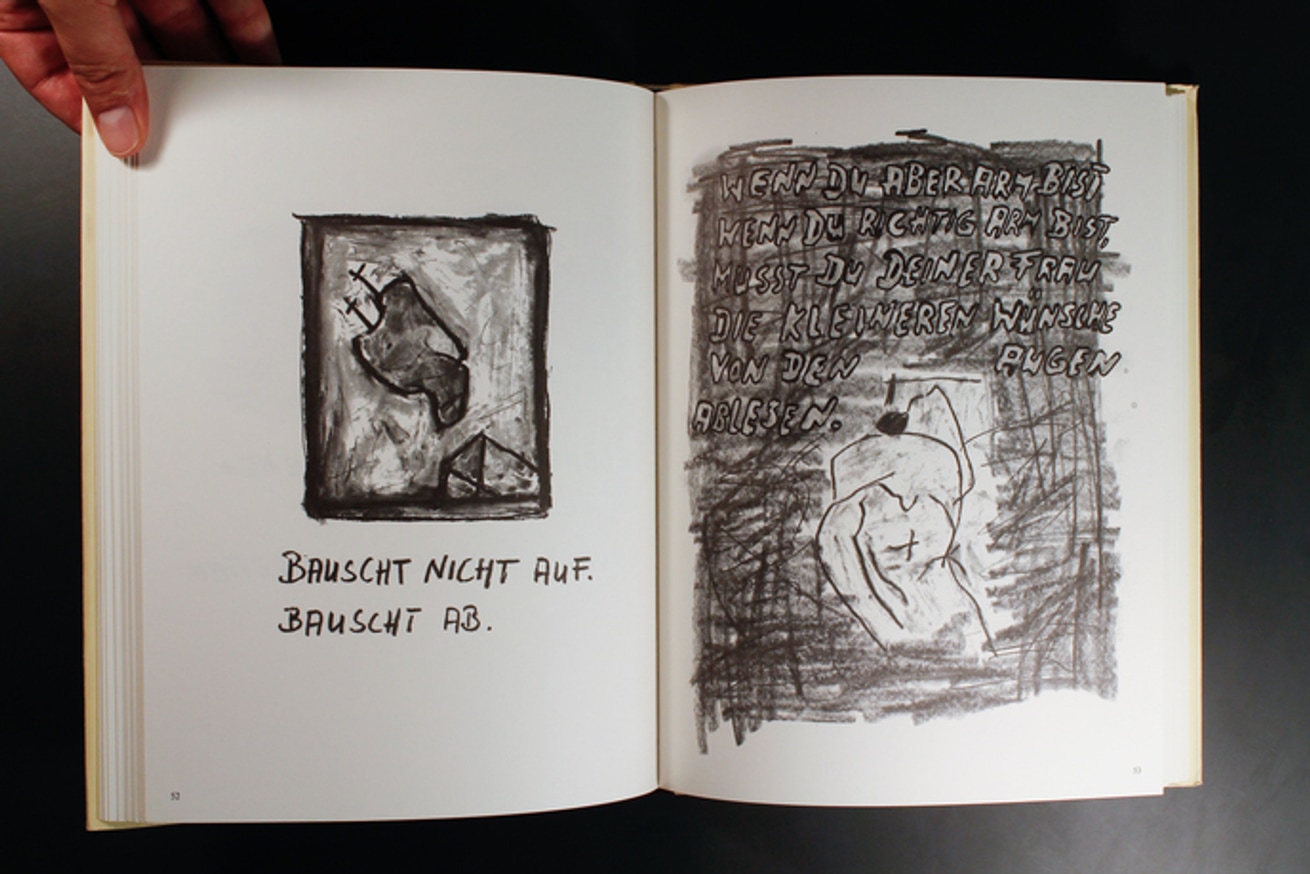 BAUSCHT NICHT AUF.
BAUSCHT AB.
52
WENN DU ABER ARM BIST
WENN DU RICHTIG ARM BIST,
MUSST DU DEINER FRAU
DIE KLEINEREN WÜNSCHE
VON DEN AUGEN
ABLESEN.
53